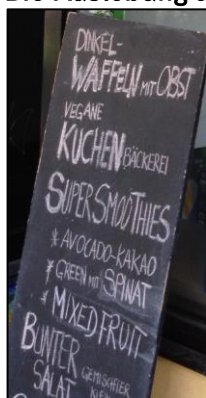 DINKEL-
WAFFELN MIT OBST
VEGANE
KUCHEN BÄCKEREI
SUPER SMOOTHIES
* AVOCADO-KAKAO
* GREEN MIT SPINAT
* MIXED FRUIT
BUNTER
SALAT GEMISCHTER